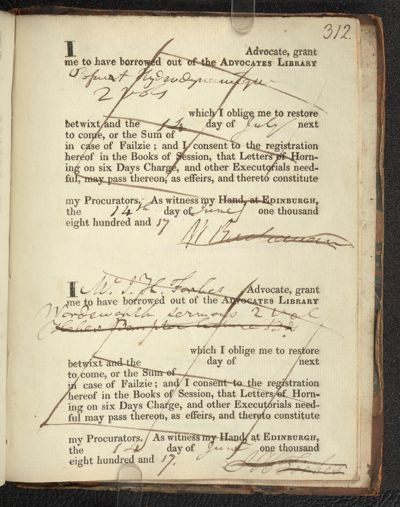 312
I Advocate, grant
me to have borrowed out of the ADVOCATES LIBRARY
Hydrodynamique
2 vols
which I oblige me to restore
betwixt and the 14 day of July next
to come, or the Sum of
in case of Failzie; and I consent to the registration
hereof in the Books of Session, that Letters of Horn-
ing on six Days Charge, and other Executorials need-
ful, may pass thereon, as effeirs, and thereto constitute
my Procurators. As witness my Hand, at EDINBURGH,
the 14th day of June one thousand
eight hundred and 17
I Mr. J. H. Forbes Advocate, grant
me to have borrowed out of the ADVOCATES LIBRARY
Wordsworth Sermons 2 vol
which I oblige me to restore
betwixt and the day of next
to come, or the Sum of
in case of Failzie; and I consent to the registration
hereof in the Books of Session, that Letters of Horn-
ing on six Days Charge, and other Executorials need-
ful may pass thereon, as effeirs, and thereto constitute
my Procurators. As witness my Hand, at EDINBURGH,
the 14 day of June one thousand
eight hundred and 17.